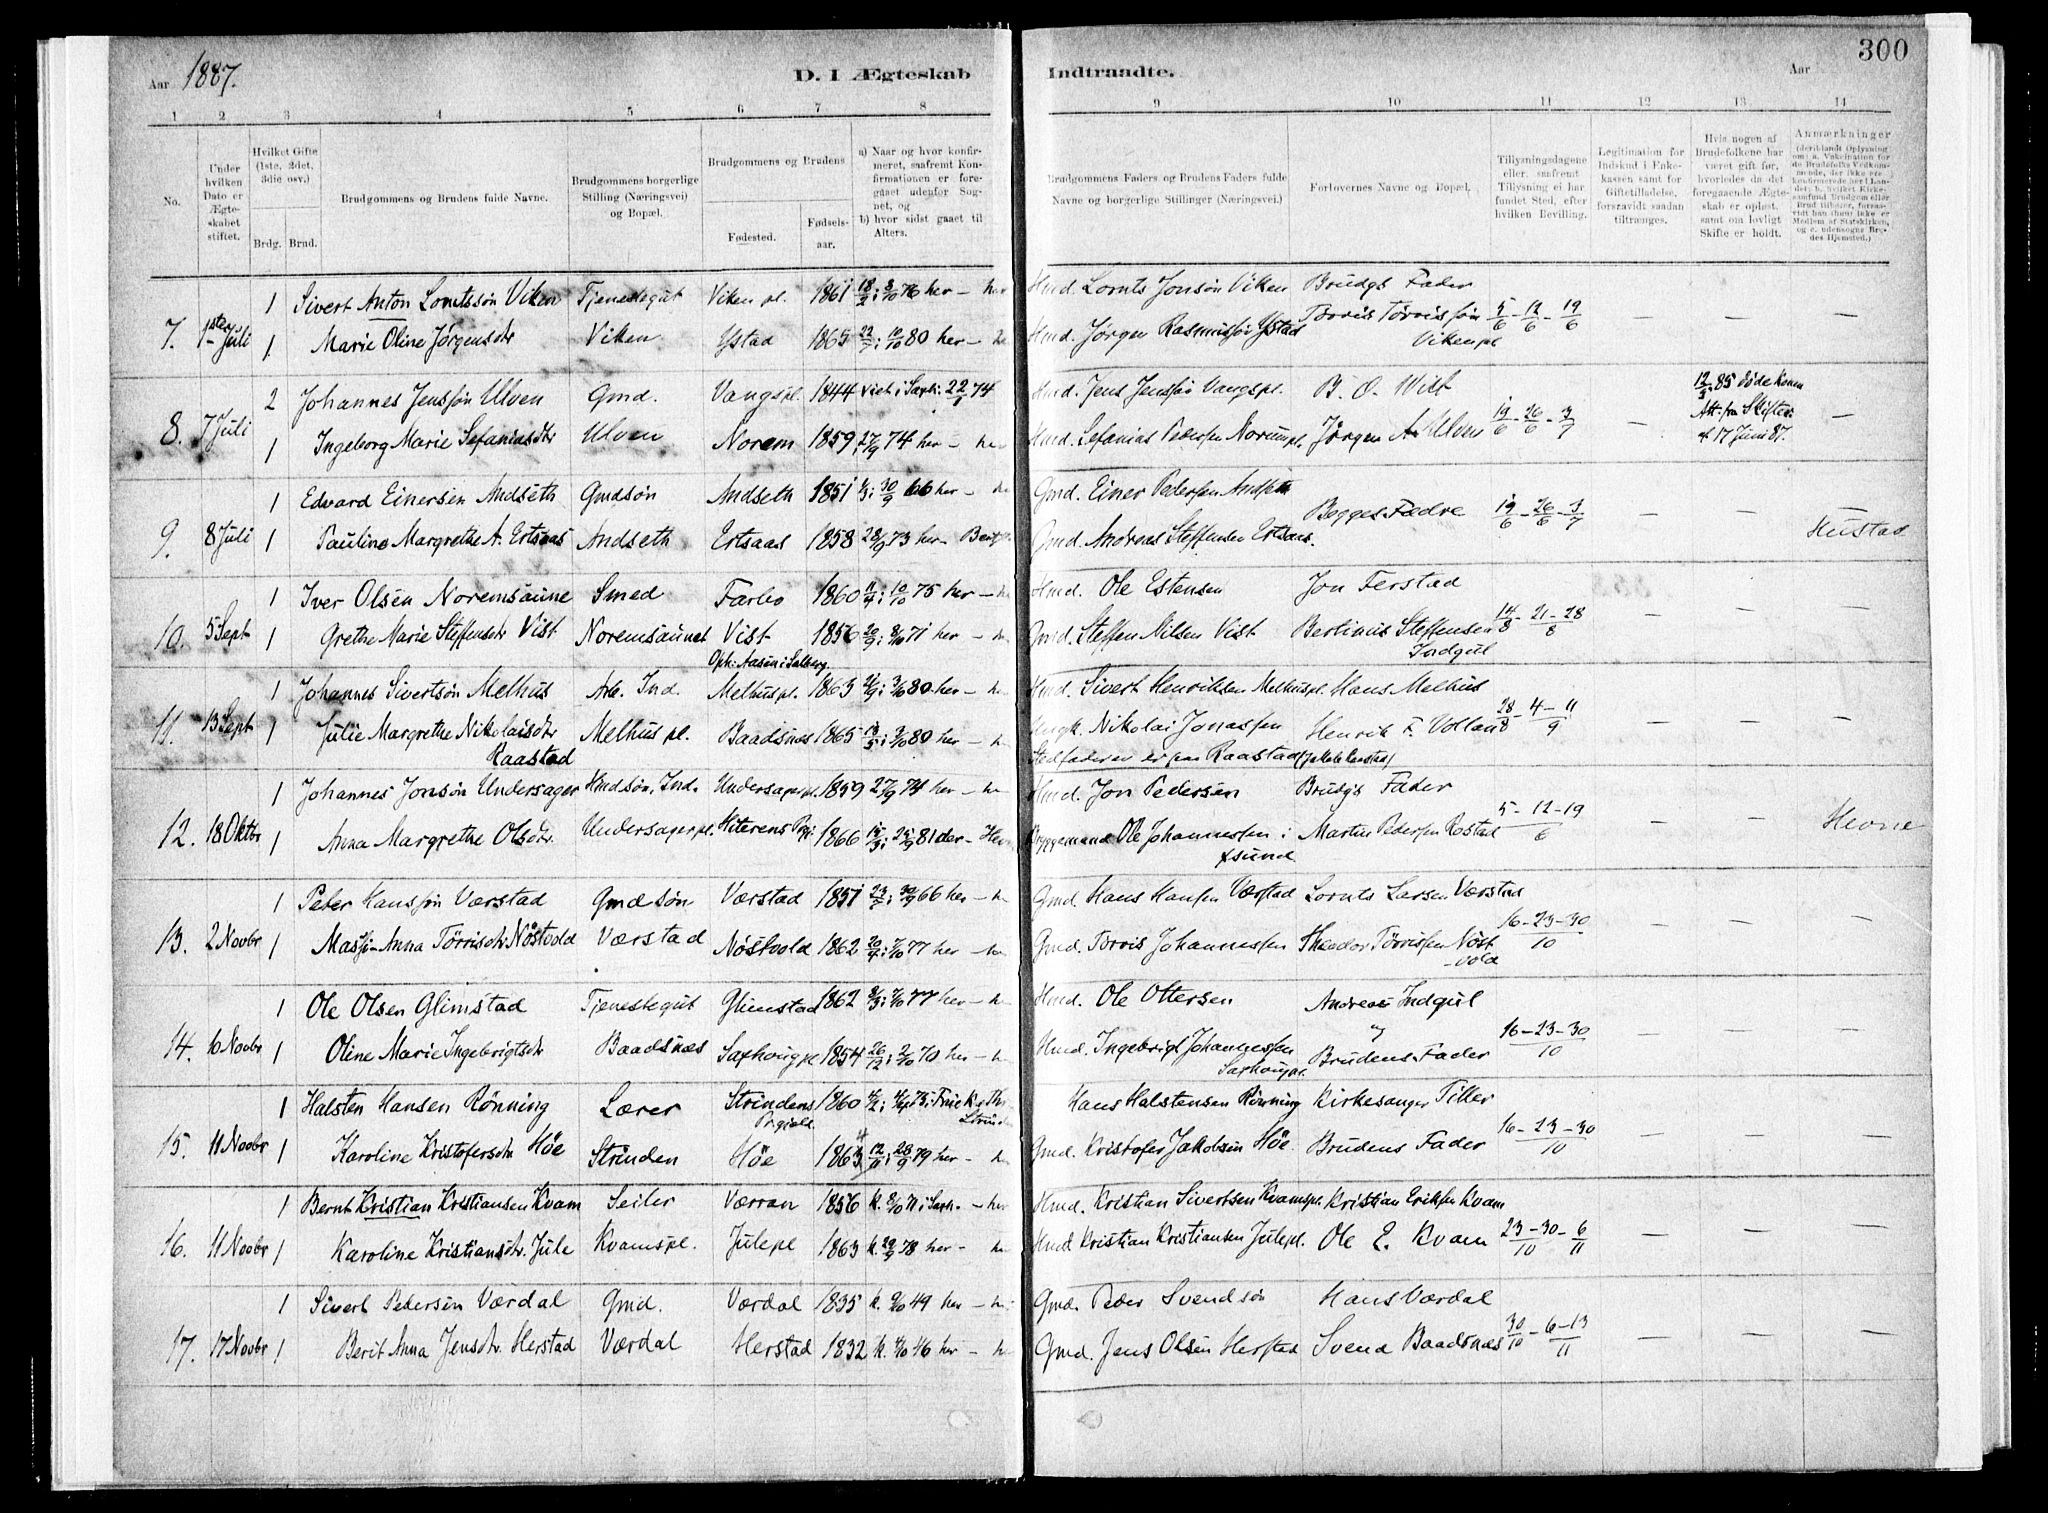 Aar 1887. D. I Ægteskab Indtraadte. Aar 300
1 2 3 4 5 6 7 8 9 10 11 12 13 14
No.
Under hvilken Dato er Ægteskabet stiftet.
Hvilket Gifte (1ste, 2det, 3die osv.)
Brdg. Brud.
Brudgommens og Brudens fulde Navne.
Brudgommens borgerlige Stilling (Næringsvei) og Bopæl.
Brudgommens og Brudens
Fødested. Fødselsaar.
a) Naar og hvor konfirmeret, saafremt Konfirmationen er foregaaet udenfor Sognet, og
b) hvor sidst gaaet til Alters.
Brudgommens Faders og Brudens Faders fulde Navne og borgerlige Stillinger (Næringsvei.)
Forlovernes Navne og Bopæl.
Tillysningsdagene eller, saafremt Tillysning ei har fundet Sted, efter hvilken Bevilling.
Legitimation for Indskud i Enkekassen samt for Giftetilladelse, forsaavidt saadan tiltrænges.
Hvis nogen af Brudefolkene har været gift før, hvorledes da det foregaaende Ægteskab er opløst, samt om lovligt Skifte er holdt.
Anmærkninger
1 Sivert Anton Lorntssøn Viken Tjenestegut Viken pl. 1861 18/2 i 8/10 76 her – her Hmd. Lornts Jonsøn Viken Brudgs Fader
7. 1ste Juli 1 Marie Oline Jørgensdtr Viken Ystad 1865 22/7 i 10/10 80 her – Hmd. Jørgen Rasmussøn Ystad Tørris Tørrissøn Viken pl 5/6 - 12/6 - 19/6 – – –
2 Johannes Jenssøn Ulven Gmd. Vangspl. 1844 Hmd. Jens Jenssøn Vangspl. B. O. Wist 12/3 85 døde konen
8. 7 Juli 1 Ingeborg Marie Sefaniasdtr Ulven Norem 1859 i 27/9 74 her – Hmd. Sefanias Pedersen Norumpl. Jørgen A. Ulven 19/6 - 26/6 - 3/7 – Att. fra Skifter. af 17 Juni 87. –
1 Edvard Einersen Andseth Gmdsøn Andseth 1851 1/3 i 30/9 66 her – Gmd. Einer Pedersen Andseth
9. 8 Juli 1 Pauline Margrethe A. Ertsaas Andseth Ertsaas 1858 28/9 73 her – Gmd. Andreas Steffensen Ertsaas. Begges Fædre 19/6 - 26/6 - 3/7 – – – Hustad
1 Iver Olsen Noremsaune Smed Farbo 1860 11/4 i 10/10 75 her – Hmd. Ole Estensen Jon Ferstad
10. 5 Sept 1 Grethe Marie Steffensdtr Vist Noremsaunet Vist 1856 20/9 i 8/10 71 her – Gmd. Steffen Nilsen Vist Bertinus Steffensen Indgul 14/8 - 21 - 28/8 – – –
Oph: Aasen i Salberg.
1 Johannes Sivertsøn Melhus Arb. Ind. Melhuspl. 1863 21/9 i 3/10 80 her – Hmd. Sivert Henriksen Melhuspl. Hans Melhus
11. 13 Sept 1 Julie Margrethe Nikolaisdtr Raastad Melhus pl. Baadsnes 1865 19/5 i 3/10 80 her – Nikolai Jonassen Henrik F. Vollan 28/8 - 4 - 11/9 – – –
Stedfaderen er paa Raastad
1 Johannes Jonsøn Undersager Hmdsøn. Ind. Undersagerpl. 1859 27/9 74 her – Hmd. Jon Pedersen Brudgs Fader
12. 18 Oktbr 1 Anna Margrethe Olsdtr. Undersagerpl. Hiterens Prgj 1866 81 der – Bryggemand Ole Johannessen i Xsund Martin Pedersen Rostad 5 - 12 - 19/6 – – Hevne
1 Peter Hanssøn Værstad Gmdsøn Værstad 1851 23/7 i 30/9 66 her – Gmd. Hans Hansen Værstad Lornts Larsen Værstad
13. 2 Novbr 1 Massi-Anna Tørrisdtr Nøstvold Værstad Nøstvold 1862 20/4 i 7/10 77 her – Gmd. Tørris Johannessen Theodor Tørrissen Nøstvold 16 - 23 - 30/10 – – –
1 Ole Olsen Glimstad Tjenestegut Glimstad 1862 8/3 i 7/10 77 her – Hmd. Ole Ottersen Andreas Indgul
14. 10 Novbr 1 Oline Marie Ingebrigtsdtr Baadsnæs Saxhougpl 1854 26/12 i 2/10 70 her – Hmd. Ingebrigt Johannessen Saxhougpl. Brudens Fader 16 - 23 - 30/10 – – –
1 Halsten Hansen Rønning Lærer Strindens Prgjeld. 1860 Hans Halstensen Rønning Kirkesanger Tiller
15. 11 Novbr 1 Karoline Kristofersdtr Høe Strinden Høe 1863 12/11 i 28/9 79 her – Gmd. Kristofer Jakobsen Høe Brudens Fader 16 - 23 - 30/10 – – –
1 Bernt Kristian Kristiansen Kvam Seiler Værran 1856 k. 8/10 71 i Saxh. – her Hmd. Kristian Sivertsen Kvamspl. Kristian Eriksen Kvam
16. 11 Novbr 1 Karoline Kristiansdtr. Jule Kvamspl. Julepl 1863 k. 29/9 78 her – Hmd Kristian Kristiansen Julepl. Ole E. Kvam 23 - 30/10 - 6/11 – – –
1 Sivert Pedersen Værdal Gmd. Værdal 1835 k. 9/10 49 her – Gmd. Peder Svendsøn Hans Værdal
17. 17 Novbr 1 Berit Anna Jensdtr. Herstad Værdal Herstad 1832 k. 4/10 46 her – Gmd. Jens Olsen Herstad Svend Baadsnæs 30/10 - 6 - 13/11 – – –